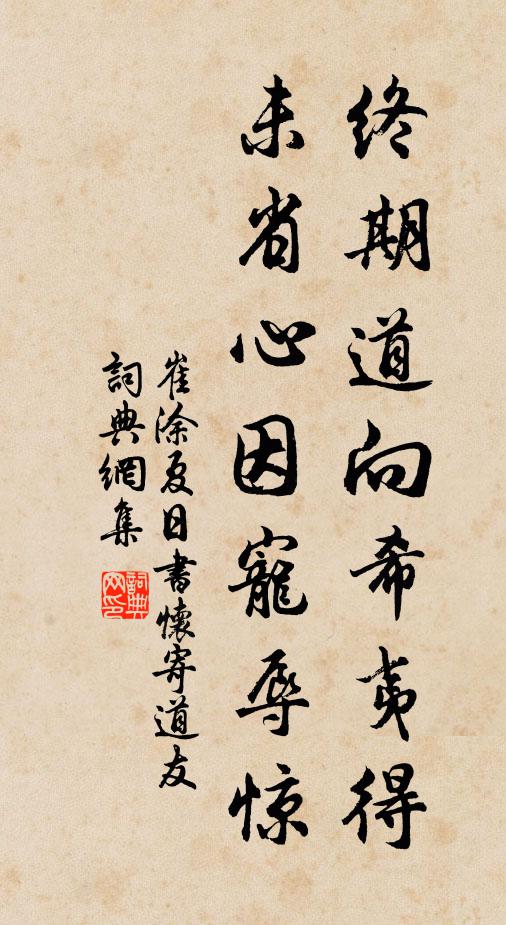 終期道向希夷得
未省心因寵辱惊
崔涂夏日書懷寄道友
詞典網集
詞典
网印